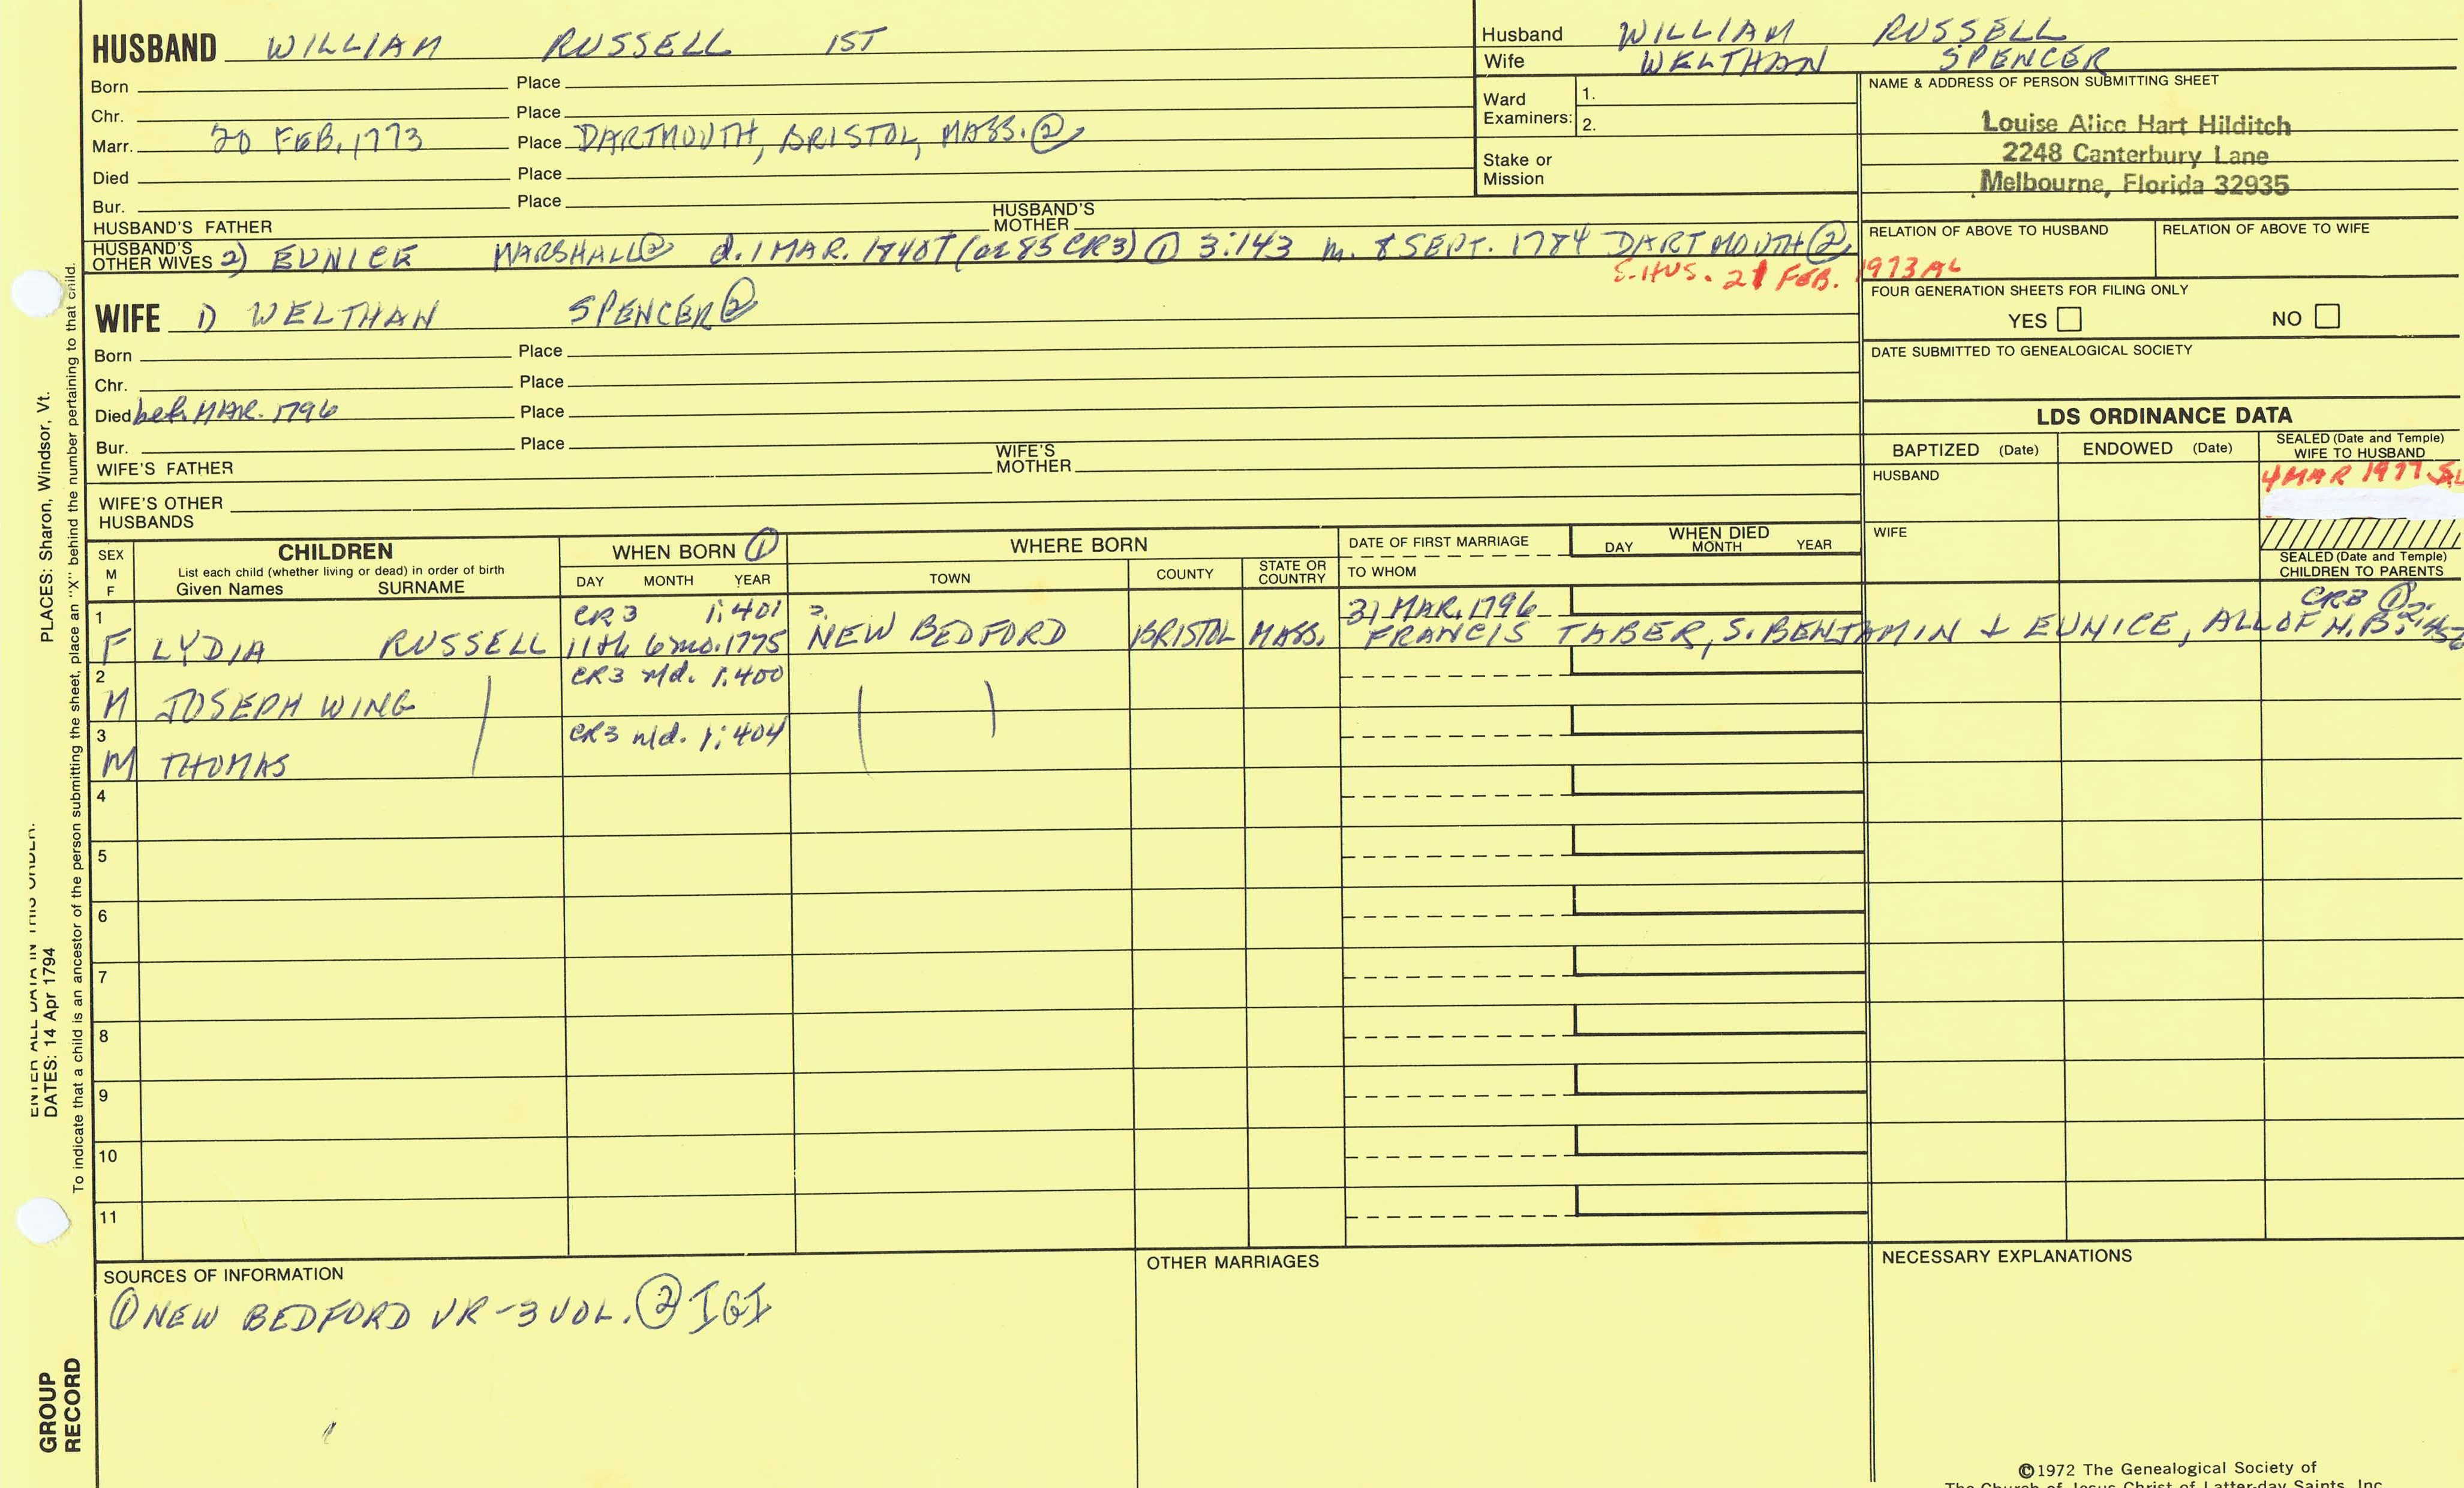 HUSBAND WILLIAM RUSSELL 1ST
Born Place
Chr. Place
Marr. 20 FEB. 1773 Place DARTMOUTH, BRISTOL, MASS. ②
Died Place
Bur. Place
HUSBAND'S FATHER HUSBAND'S MOTHER
HUSBAND'S OTHER WIVES 2) EUNICE MARSHALL② d. 1 MAR. 1840T (ae 85 CR3) ① 3:143 m. 8 SEPT. 1784 DARTMOUTH②
S.HUS. 21 FEB. 1973 AL
WIFE 1) WELTHAN SPENCER②
Born Place
Chr. Place
Died bef. MAR. 1796 Place
Bur. Place
WIFE'S FATHER WIFE'S MOTHER
WIFE'S OTHER HUSBANDS
Husband WILLIAM RUSSELL
Wife WELTHAN SPENCER
Ward Examiners: 1.
2.
Stake or Mission
NAME & ADDRESS OF PERSON SUBMITTING SHEET
Louise Alice Hart Hilditch
2248 Canterbury Lane
Melbourne, Florida 32935
RELATION OF ABOVE TO HUSBAND RELATION OF ABOVE TO WIFE
FOUR GENERATION SHEETS FOR FILING ONLY
YES NO
DATE SUBMITTED TO GENEALOGICAL SOCIETY
LDS ORDINANCE DATA
BAPTIZED (Date) ENDOWED (Date) SEALED (Date and Temple) WIFE TO HUSBAND
HUSBAND 4 MAR 1977 SL
WIFE
SEALED (Date and Temple)
CHILDREN TO PARENTS
SEX M F
CHILDREN
List each child (whether living or dead) in order of birth
Given Names SURNAME
WHEN BORN ①
DAY MONTH YEAR
WHERE BORN
TOWN COUNTY STATE OR COUNTRY
DATE OF FIRST MARRIAGE
TO WHOM
WHEN DIED
DAY MONTH YEAR
1 CR3 1:401 ? 31 MAR. 1796 CR3 ①
F LYDIA RUSSELL 11th 6 mo. 1775 NEW BEDFORD BRISTOL MASS. FRANCIS TABER, S. BENJAMIN & EUNICE, ALL OF N.B.
2 CR3 n/d. 1:400
M JOSEPH WING
3 CR3 n/d. 1:404
M THOMAS
4
5
6
7
8
9
10
11
SOURCES OF INFORMATION
① NEW BEDFORD VR - 3 VOL. ② IGI
OTHER MARRIAGES
NECESSARY EXPLANATIONS
©1972 The Genealogical Society of
The Church of Jesus Christ of Latter-day Saints, Inc.
To indicate that a child is an ancestor of the person submitting the sheet, place an "X" behind the number pertaining to that child.
PLACES: Sharon, Windsor, Vt.
ENTER ALL DATA IN THIS ORDER:
DATES: 14 Apr 1794
GROUP
RECORD